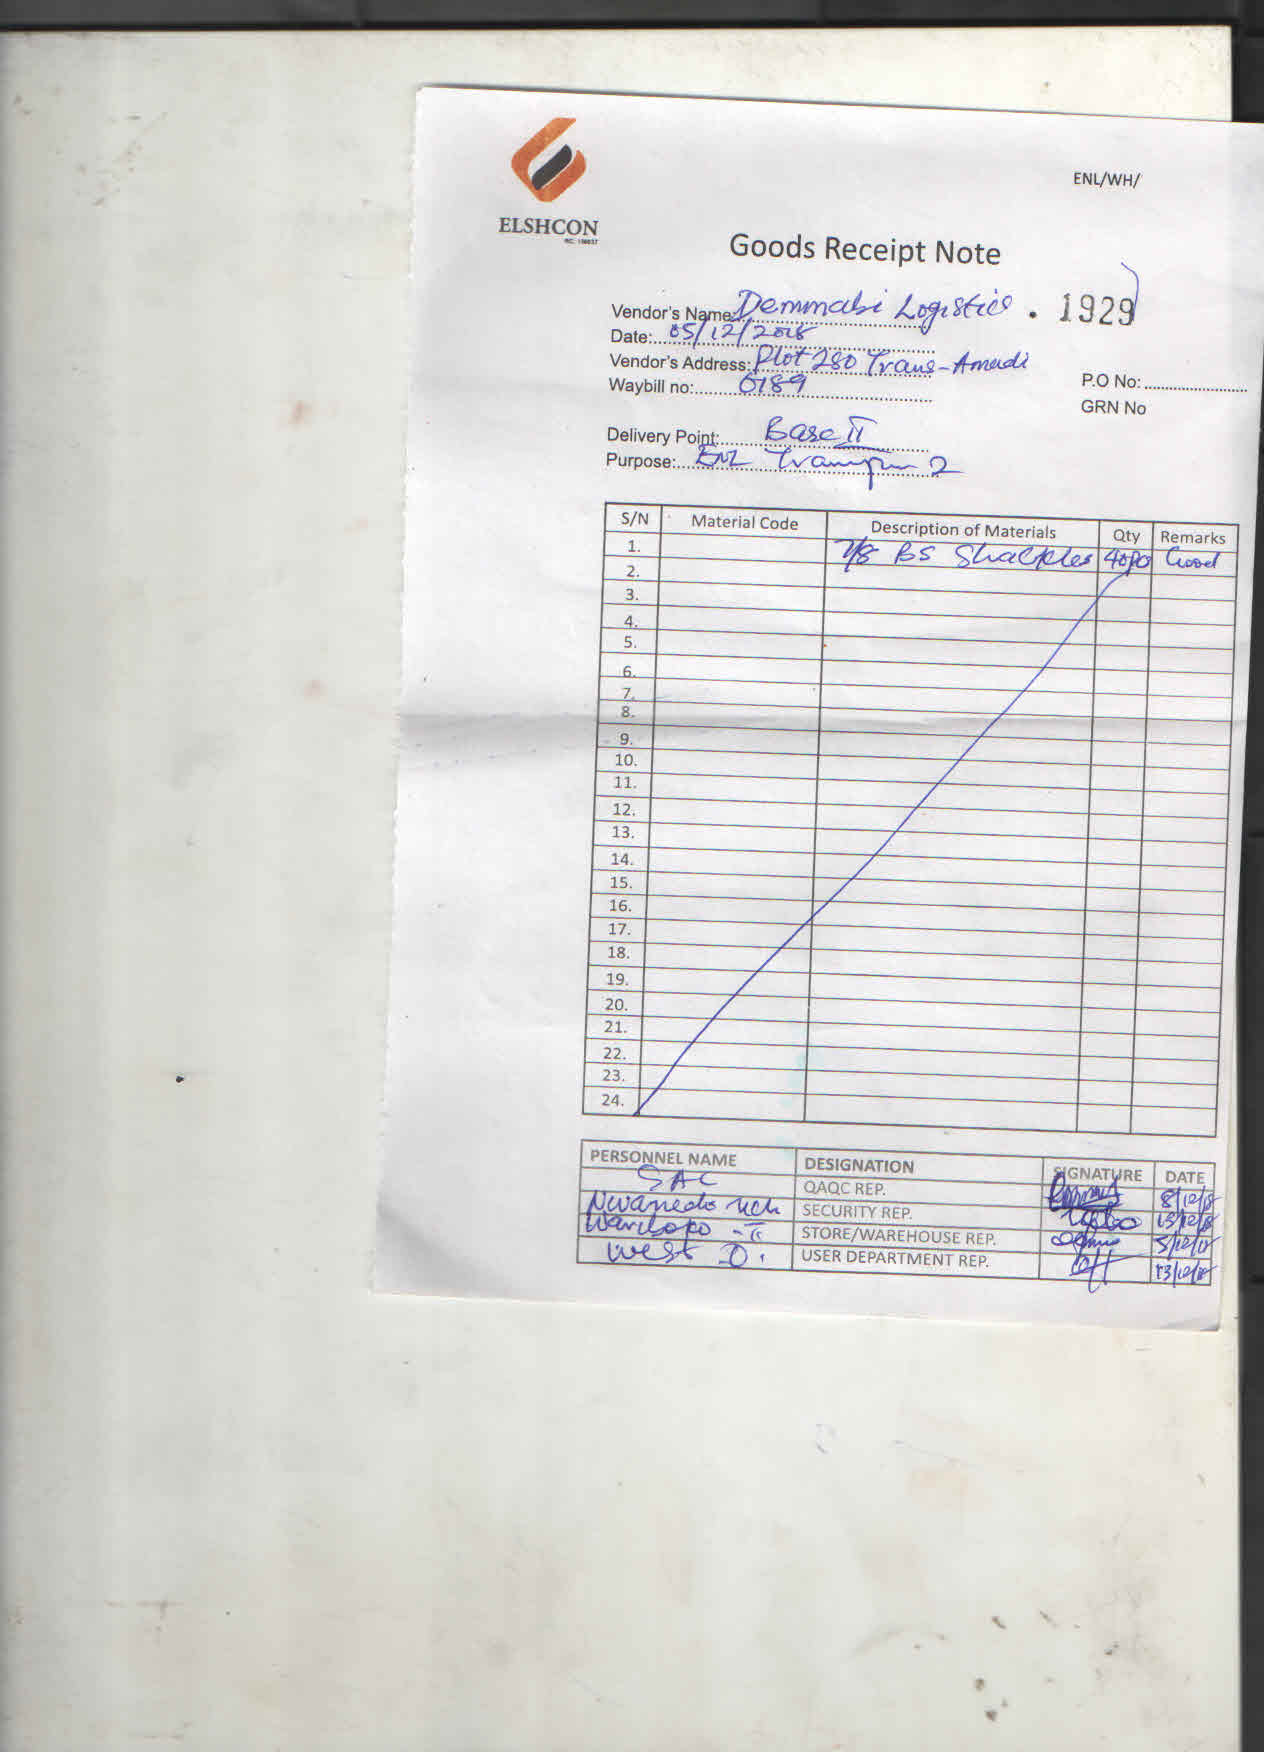 ENL/WH/
ELSHCON
RC. 156037
Goods Receipt Note
Vendor's Name: Demmabi Logistics . 1929
Date: 05/12/2018
Vendor's Address: Plot 280 Trans-Amadi
Waybill no: 6189
P.O No:
GRN No
Delivery Point: Base II
Purpose: ENL 2
S/N Material Code Description of Materials Qty Remarks
1. 7/8 BS Shackles Good
2.
3.
4.
5.
6.
7.
8.
9.
10.
11.
12.
13.
14.
15.
16.
17.
18.
19.
20.
21.
22.
23.
24.
PERSONNEL NAME DESIGNATION SIGNATURE DATE
SAC QAQC REP. 8/12/18
Nwanedo SECURITY REP.
STORE/WAREHOUSE REP. 5/12/18
West O. USER DEPARTMENT REP. 13/12/18